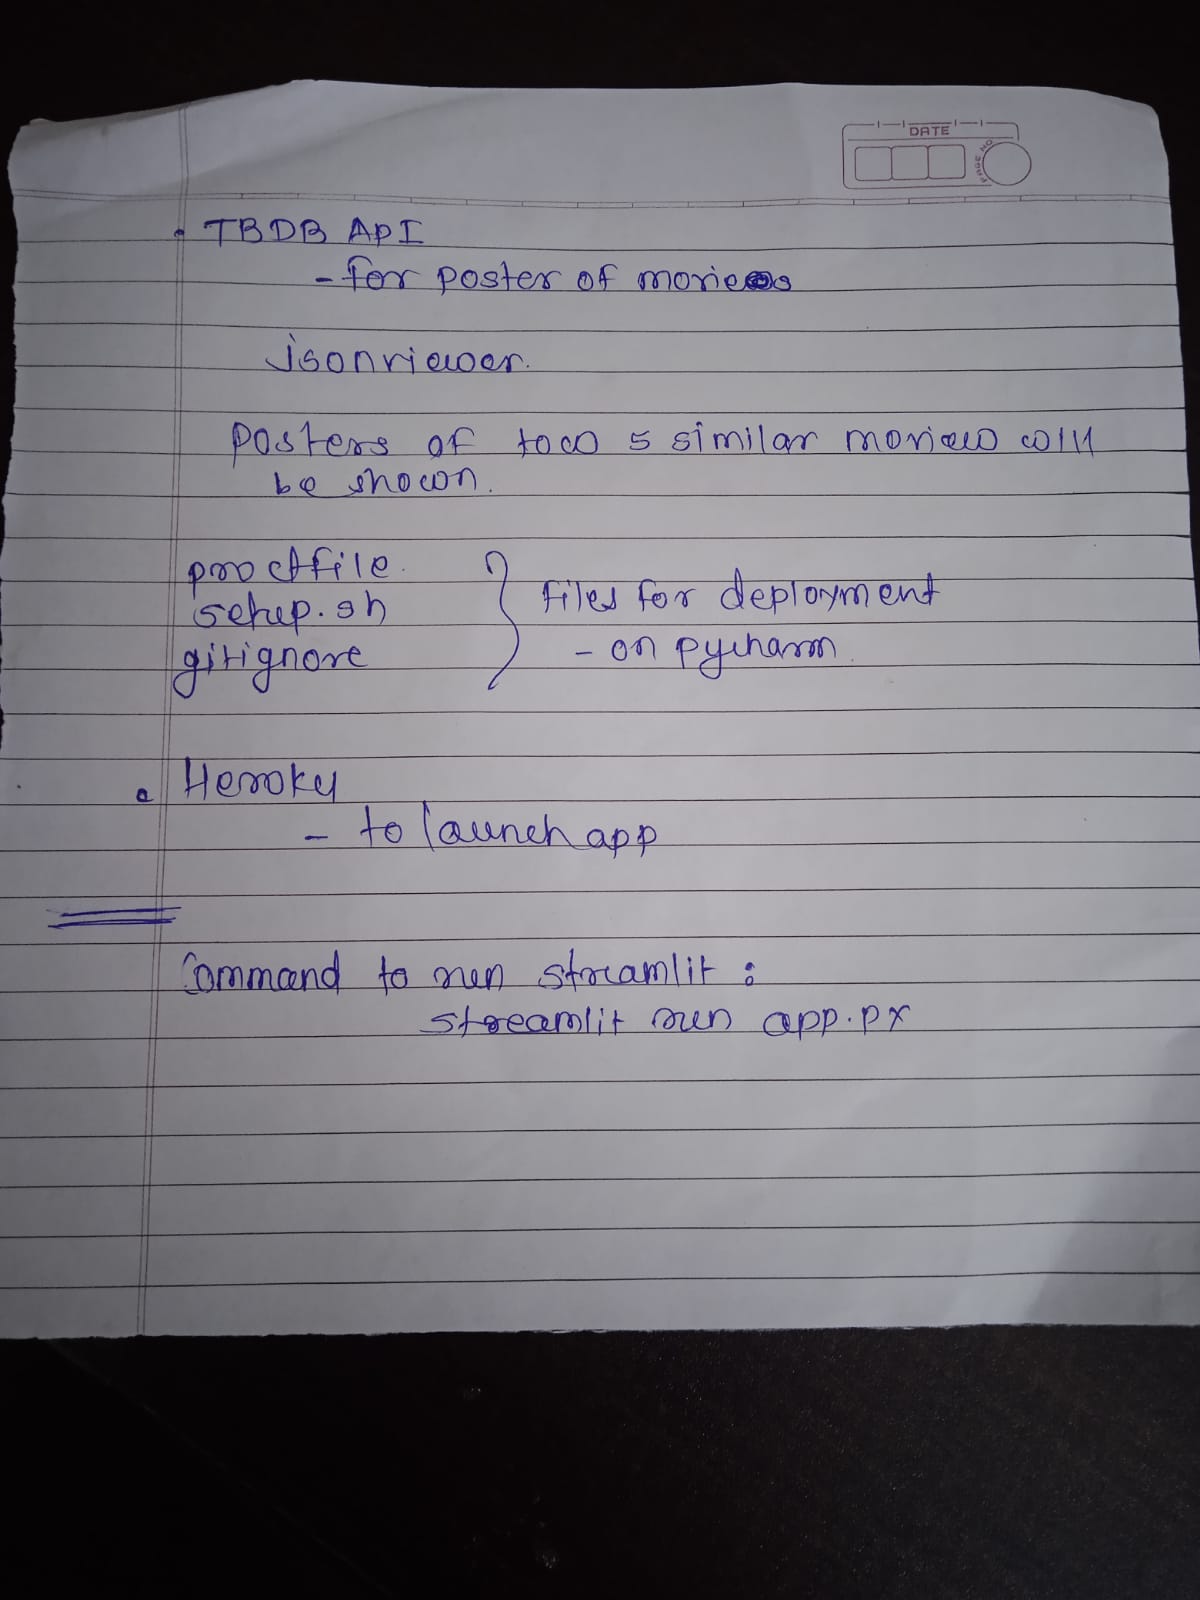 DATE
PAGE NO
• TBDB API
- for poster of movies
jsonviewer.
Posters of 5 similar movies will
be shown.
proctfile.
setup.sh
gitignore
files for deployment
- on pycharm
• Heroku
- to launch app
Command to run streamlit :
streamlit run app.py